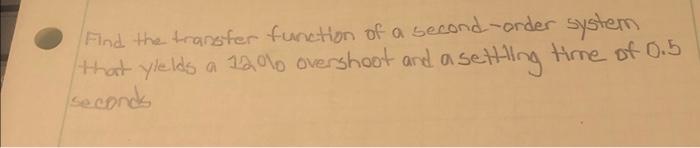 Find the transfer function of a second-order system
that yields a 12% overshoot and a settling time of 0.5
seconds